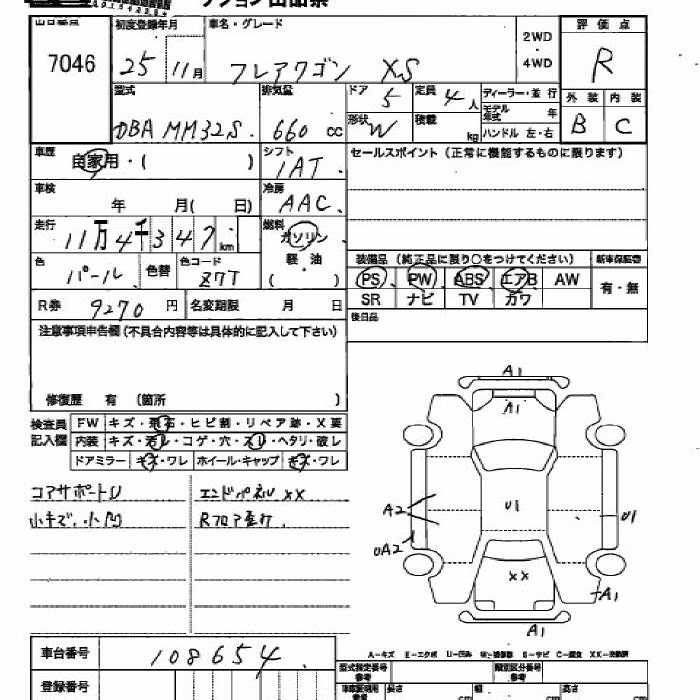 7046
初度登録年月
25年 11月
車名・グレード
フレアワゴン XS
2WD
・
4WD
評価点
R
外装 内装
B C
型式
DBA MM32S
排気量
660 cc
ドア
5
定員
4人
形状
W
積載
kg
ディーラー・並行
モデル年式 年
ハンドル 左・右
車歴
自家用・( )
シフト
IAT
セールスポイント (正常に機能するものに限ります)
車検
年 月( 日)
冷房
AAC
走行
11万4千347km
燃料
ガソリン
軽・油
( )
色
パール
色替
色コード
Z7T
装備品 (純正品に限り○をつけてください)
新車保証書
PS PW ABS エアB AW
SR ナビ TV カワ
有・無
R券 9270円
名変期限 月 日
後日品
注意事項申告欄(不具合内容等は具体的に記入して下さい)
修復歴 有 (箇所 )
検査員
記入欄
FW キズ・飛石・ヒビ割・リペア跡・X要
内装 キズ・汚レ・コゲ・穴・スレ・ヘタリ・破レ
ドアミラー キズ・ワレ ホイール・キャップ キズ・ワレ
コアサポートU
小キズ、小凹
エンドパネルXX
Rフロア歪ガ
A1
A1
U1
A2
UA2
U1
XX
A1
A1
A-キズ E-エクボ U-凹み W-補修跡 S-サビ C-腐食 XX-交換済
車台番号
108654
登録番号
型式指定番号
参考
類別区分番号
参考
長さ cm
幅 cm
高さ cm